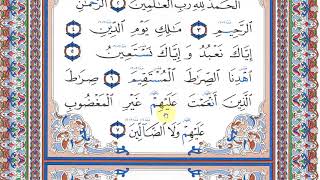 الْحَمْدُ لِلَّهِ رَبِّ الْعَٰلَمِينَ ٢ الرَّحْمَٰنِ
الرَّحِيمِ ٣ مَٰلِكِ يَوْمِ الدِّينِ ٤
إِيَّاكَ نَعْبُدُ وَ إِيَّاكَ نَسْتَعِينُ ٥
اهْدِنَا الصِّرَاطَ الْمُسْتَقِيمَ ٦ صِرَاطَ
الَّذِينَ أَنْعَمْتَ عَلَيْهِمْ غَيْرِ الْمَغْضُوبِ
عَلَيْهِمْ وَلَا الضَّالِّينَ ٧